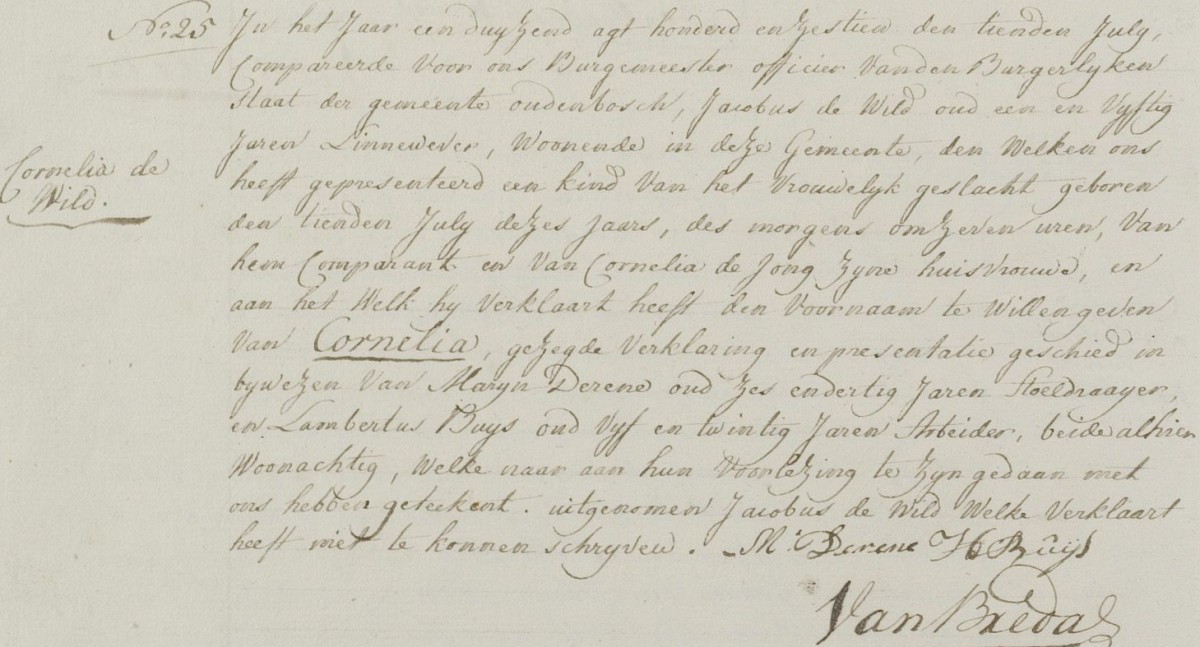 No. 25
In het Jaar een duyzend agt honderd en zestien den tienden July,
Compareerde voor ons Burgemeester officier van den Burgerlyken
Staat der gemeente oudenbosch, Jacobus de Wild oud een en Vyftig
Jaren Linnewever, Woonende in deze Gemeente, den Welken ons
heeft gepresenteerd een kind van het vrouwelyk geslacht geboren
den tienden July dezes jaars, des morgens om zeven uren, van
hem Comparant en van Cornelia de Jong zyne huisvrouwe, en
aan het Welk hy verklaart heeft den voornaam te willen geven
van Cornelia, gezegde verklaring en presentatie geschied in
bywezen van Maryn Derene oud zes en dertig Jaren Stoeldraayer,
en Lambertus Buys oud vyf en twintig Jaren Arbeider, beide alhier
Woonachtig, Welke naar aan hun voorlezing te zyn gedaan met
ons hebben geteekent. uitgenomen Jacobus de Wild Welke verklaart
heeft niet te konnen schryven. M. Derene Buijs
Van Breda
Cornelia de
Wild.